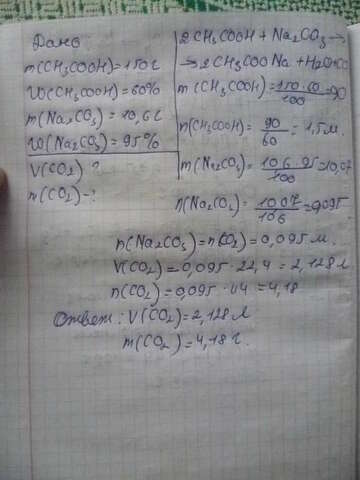 Дано
m(CH₃COOH)=150г
W(CH₃COOH)=60%
m(Na₂CO₃)=10,6г
W(Na₂CO₃)=95%
V(CO₂)?
m(CO₂)-?
2CH₃COOH+Na₂CO₃→
→2CH₃COONa+H₂O+CO
m(CH₃COOH)=150·60/100=90
n(CH₃COOH)=90/60=1,5м.
m(Na₂CO₃)=10,6·95/100=10,07
n(Na₂CO₃)=10,07/106=0,095
n(Na₂CO₃)=n(CO₂)=0,095м.
V(CO₂)=0,095·22,4=2,128л
n(CO₂)=0,095·44=4,18
Ответ: V(CO₂)=2,128л
m(CO₂)=4,18г.